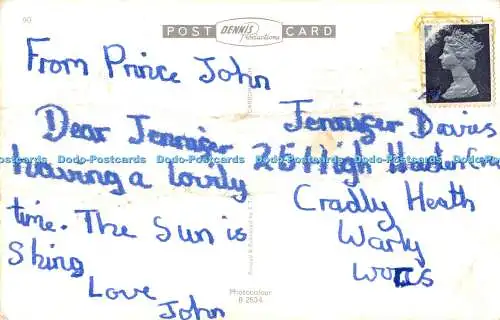 60
POST CARD
DENNIS
Productions
From Prince John
Dear Jenniger
having a lovily
time. The Sun is
Shing
Love
John
Jenniger Davies
25 High
Cradly Heath
Warly
Worcs
Photocolour
B 2534
Dodo-Postcards Dodo-Postcards Dodo-Postcards Dodo-Postcards Dodo-Postcards Dodo-Postcards